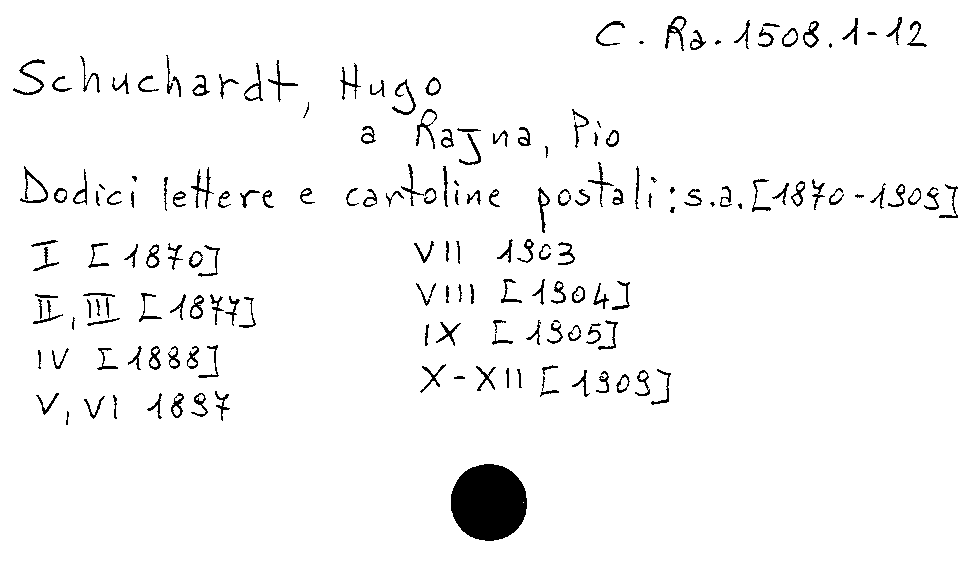 C. Ra. 1508.1-12
Schuchardt, Hugo
a Rajna, Pio
Dodici lettere e cartoline postali: s.a. [1870-1909]
I [1870]
II, III [1877]
IV [1888]
V, VI 1897
VII 1903
VIII [1904]
IX [1905]
X-XII [1909]